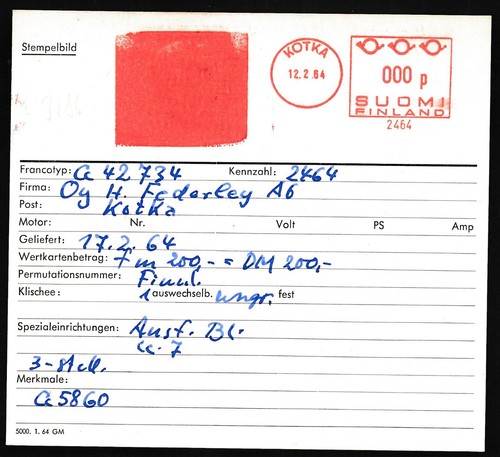 Stempelbild
KOTKA
12.2.64
000 p
SUOMI
FINLAND
2464
Francotyp: Cc 42734 Kennzahl: 2464
Firma: Oy H. Federley AB
Post: Kotka
Motor: Nr. Volt PS Amp
Geliefert: 17.2.64
Wertkartenbetrag: fm 200,- = DM 200,-
Permutationsnummer: Finnl.
Klischee: 1 auswechselb. ungr. fest
Spezialeinrichtungen: Ausf. Bl.
cc. 7
3-stell.
Merkmale:
Cc 5860
5000. 1. 64 GM